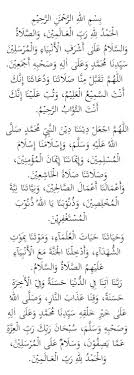 بِسْمِ اللهِ الرَّحْمٰنِ الرَّحِيْمِ
الْحَمْدُ لِلّٰهِ رَبِّ الْعَالَمِيْنَ، وَالصَّلَاةُ
وَالسَّلَامُ عَلَى أَشْرَفِ الْأَنْبِيَاءِ وَالْمُرْسَلِيْنَ
سَيِّدِنَا مُحَمَّدٍ وَعَلَى آلِهِ وَصَحْبِهِ أَجْمَعِيْنَ.
اللّٰهُمَّ تَقَبَّلْ مِنَّا صَلَاتَنَا وَدُعَائَنَا إِنَّكَ
أَنْتَ السَّمِيْعُ الْعَلِيْمُ، وَتُبْ عَلَيْنَا إِنَّكَ
أَنْتَ التَّوَّابُ الرَّحِيْمُ.
اللّٰهُمَّ اجْعَلْ دِيْنَنَا دِيْنَ النَّبِيِّ مُحَمَّدٍ صَلَّى
اللهُ عَلَيْهِ وَسَلَّمَ، وَإِسْلَامَنَا إِسْلَامَ
الْمُسْلِمِيْنَ، وَإِيْمَانَنَا إِيْمَانَ الْمُؤْمِنِيْنَ،
وَأَعْمَالَنَا أَعْمَالَ الصَّالِحِيْنَ، وَنِيَّاتَنَا نِيَّةَ
الْمُخْلِصِيْنَ، وَذُنُوْبَنَا يَا اللهُ ذُنُوْبَ
الْمُسْتَغْفِرِيْنَ.
وَحَيَاتَنَا حَيَاتَ الْعُلَمَاءِ، وَمَوْتَنَا بِمَوْتِ
الشُّهَدَاءِ، وَأَدْخِلْنَا الْجَنَّةَ مَعَ الْأَنْبِيَآءِ
عَلَيْهِمُ الصَّلَاةُ وَالسَّلَامُ.
رَبَّنَا آتِنَا فِي الدُّنْيَا حَسَنَةً وَفِي الْآخِرَةِ
حَسَنَةً، وَقِنَا عَذَابَ النَّارِ، وَصَلَّى اللهُ
عَلَى خَيْرِ خَلْقِهِ سَيِّدِنَا مُحَمَّدٍ وَعَلَى آلِهِ
وَصَحْبِهِ وَسَلَّمَ، سُبْحَانَ رَبِّكَ رَبِّ الْعِزَّةِ
عَمَّا يَصِفُوْنَ، وَسَلَامٌ عَلَى الْمُرْسَلِيْنَ،
وَالْحَمْدُ لِلّٰهِ رَبِّ الْعَالَمِيْنَ.